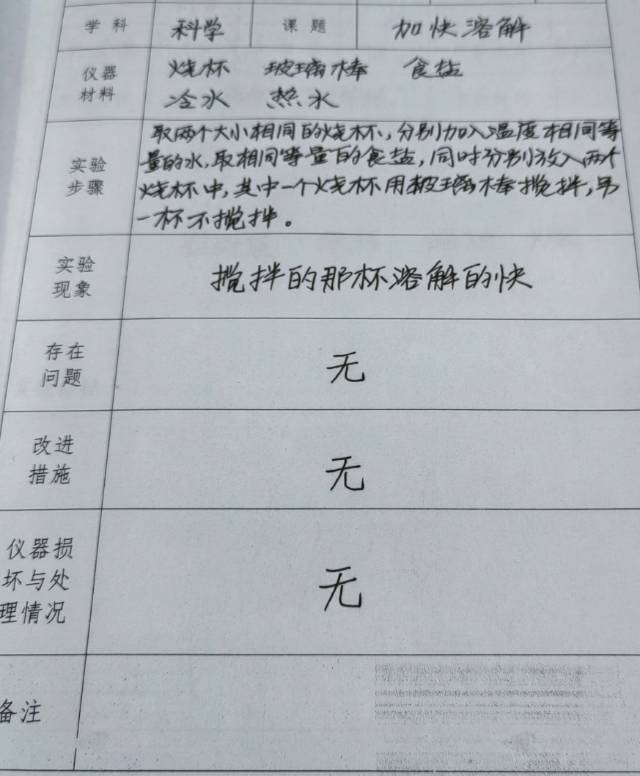 学科 科学 课题 加快溶解
仪器 烧杯 玻璃棒 食盐
材料 冷水 热水
取两个大小相同的烧杯,分别加入温度相同等
实验 量的水,取相同等量的食盐,同时分别放入两个
步骤 烧杯中,其中一个烧杯用玻璃棒搅拌,另
一杯不搅拌。
实验
现象 搅拌的那杯溶解的快
存在
问题 无
改进
措施 无
仪器损
坏与处 无
理情况
备注